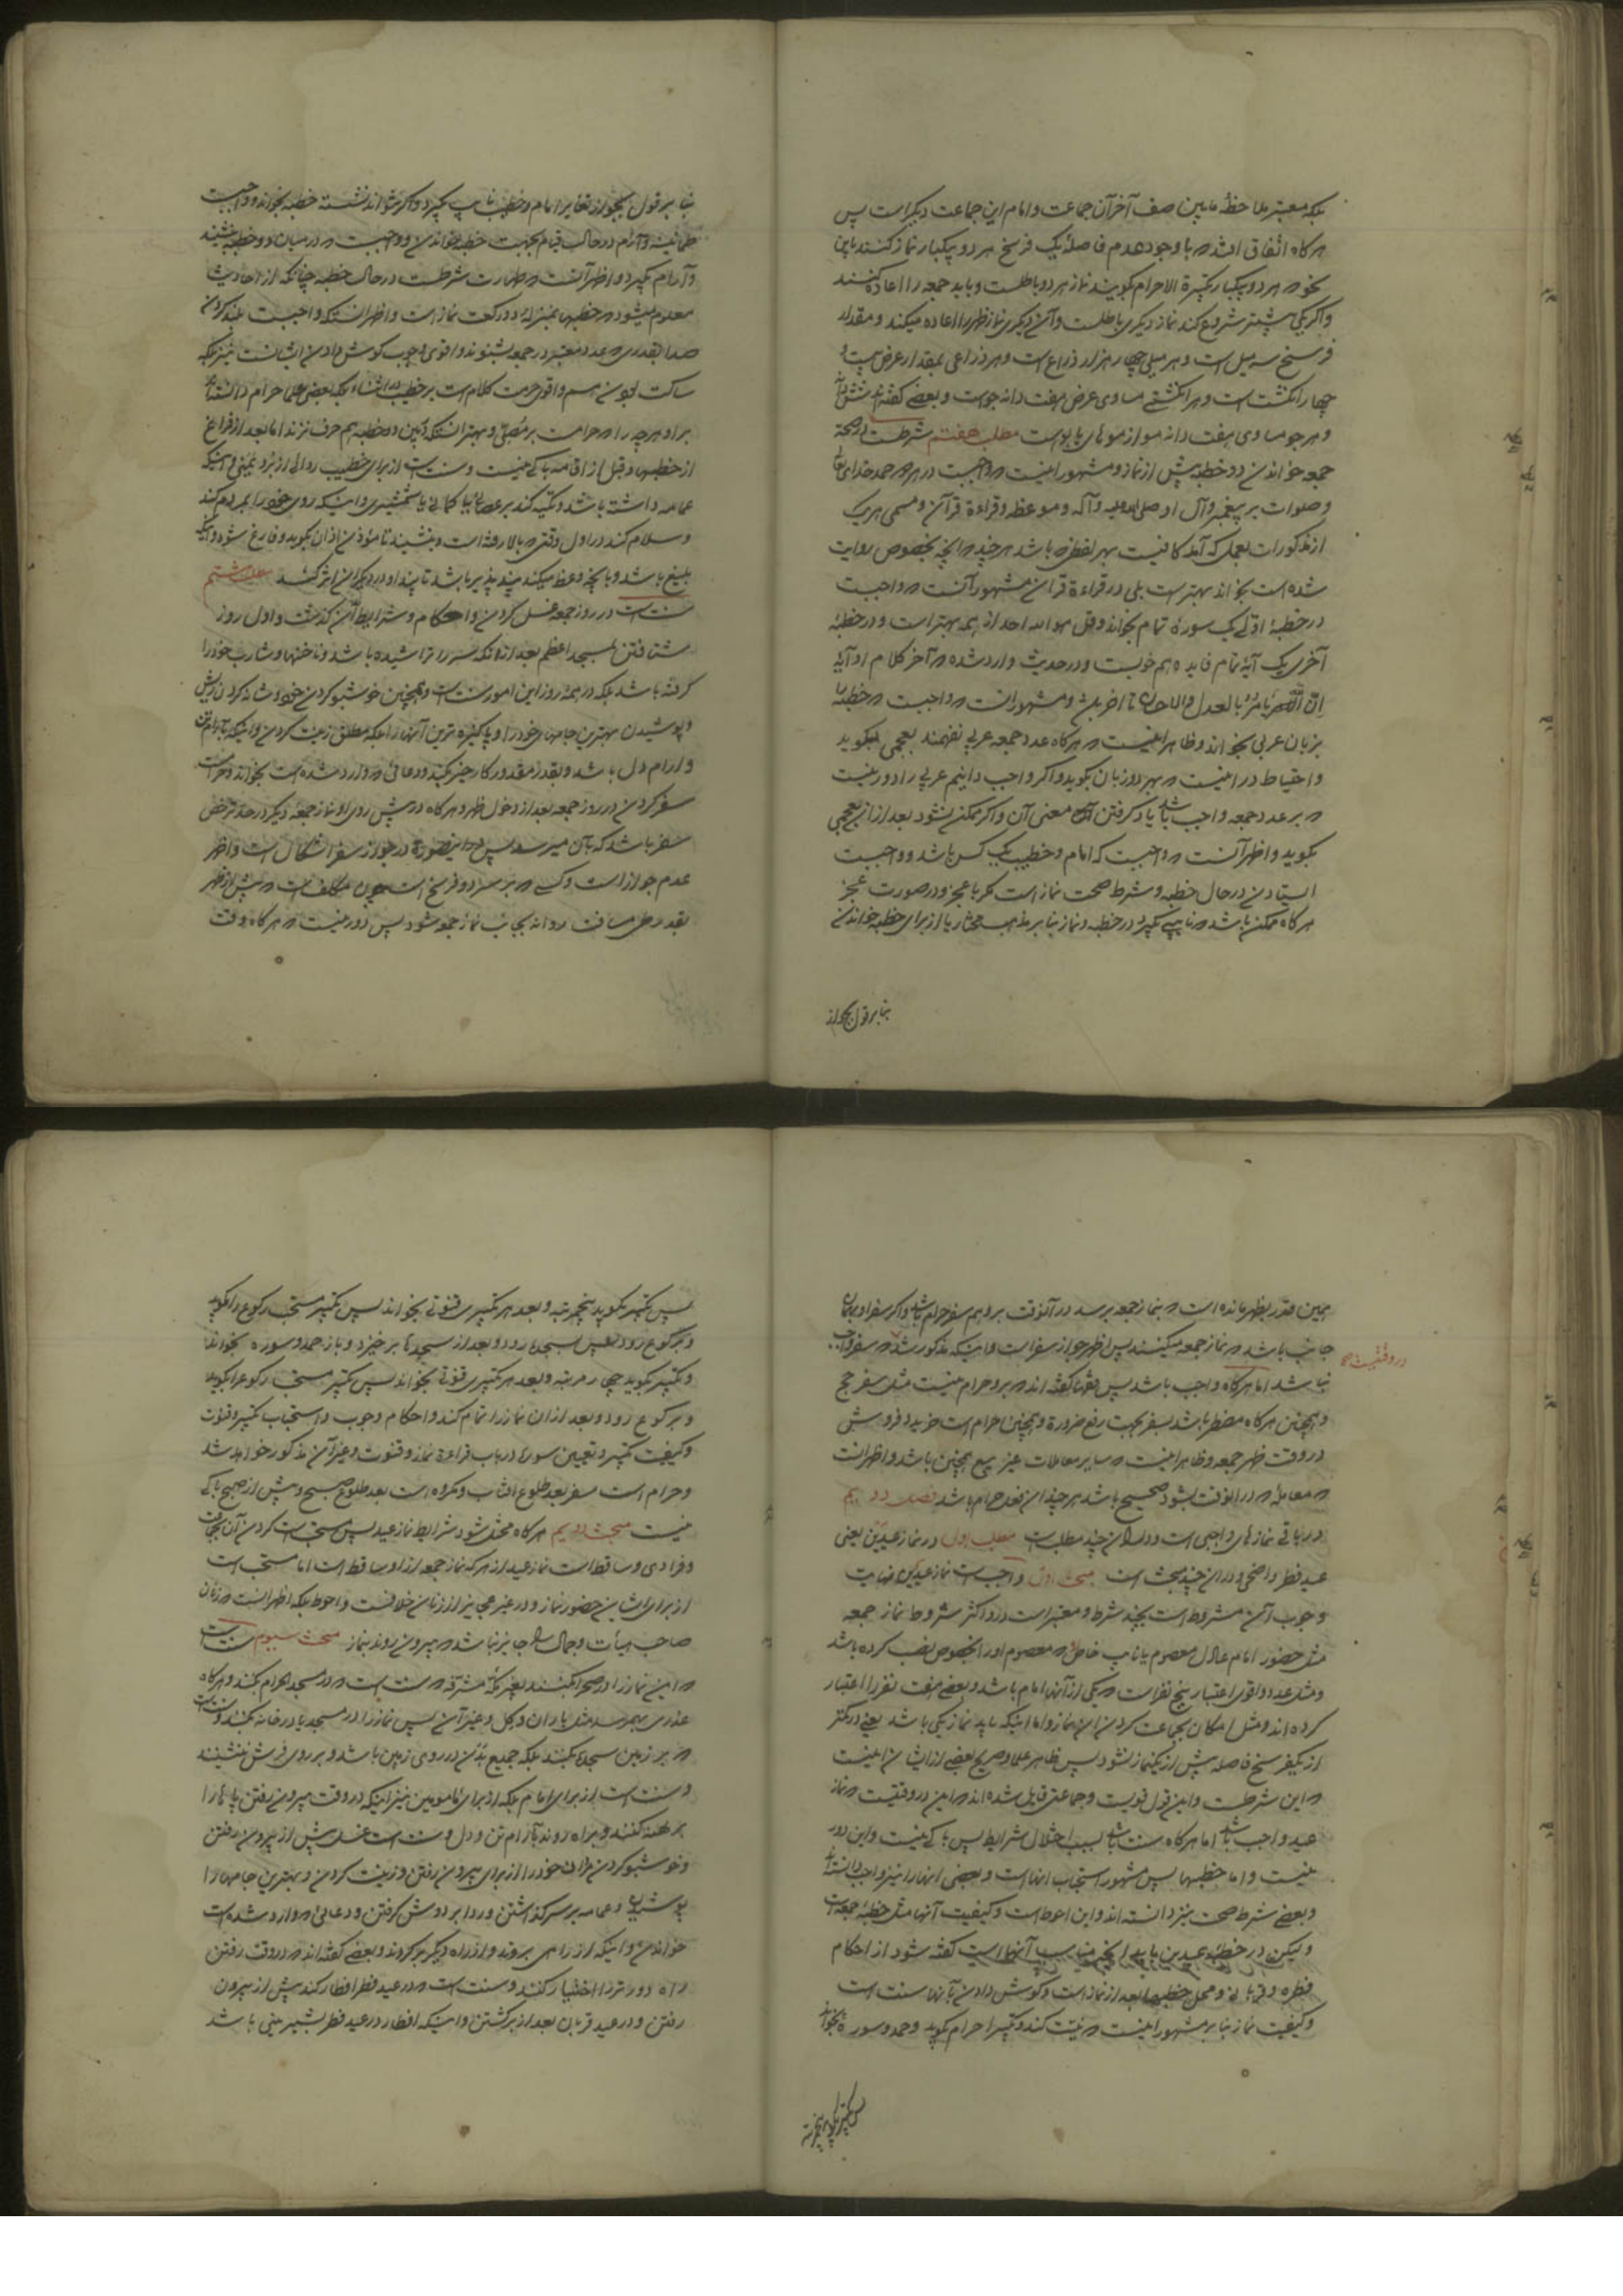 بلکه معتبر ملاحظهٔ مابین صف آخر آن جماعت و امام این جماعت دیگر است پس
هرگاه اتفاق افتد که با وجود عدم فاصلهٔ یک فرسخ هر دو یکبار نماز کنند باین
نحو که هر دو یکبار تکبیرة الاحرام گویند نماز هر دو باطلست و باید جمعه را اعاده کنند
و اگر یکی پیشتر شروع کند نماز دیگری باطلست و آن دیگری نماز ظهر را اعاده میکند و مقدار
فرسخ سه میل است و هر میلی چهار هزار ذراع است و هر ذراعی بمقدار عرض بیست و
چهار انگشت است و هر انگشتی مساوی عرض هفت دانه جو است و بعضی گفته اند شش دانه
و هر جو مساوی هفت دانه مو از موهای یابو است مطلب هفتم شرطست در صحة
جمعه خواندن دو خطبه پیش از نماز و مشهور اینست که واجبست در هر دو حمد خدای تعالی
و صلوات بر پیغمبر و آل او صلی الله علیه و آله و موعظه و قراءة قرآن و مسمی هر یک
از مذکورات بعمل که آمد کافیست بهر لفظ که باشد هر چند که آنچه بخصوص روایت
شده است بخواند بهتر است بلی در قراءة قران مشهور آنست که واجبست
در خطبهٔ اولی یک سورهٔ تمام بخواند و قل هو الله احد از همه بهتر است و در خطبهٔ
آخری یک آیهٔ تمام فایده هم خوبست و در حدیث وارد شده که آخر کلام او آیهٔ
ان الله یامر بالعدل و الاحسان تا اخر باشد و مشهور انست که واجبست که خطبه را
بزبان عربی بخواند و ظاهر اینست که هرگاه عدد جمعه عربی نفهمند بعجمی بگوید
و احتیاط در اینست که بهر دو زبان بگوید و اگر واجب دانیم عربی را دور نیست
که بر عدد جمعه واجب باشد یاد گرفتن معنی آن و اگر ممکن نشود بعد از ان بعجمی
بگوید و اظهر آنست که واجبست که امام و خطیب یک کس باشد و واجبست
ایستادن در حال خطبه و شرط صحت نماز است مگر با عجز و در صورت عجز
هرگاه ممکن باشد که نایب بگیرد در خطبه و نماز بنا بر مذهب مختار یا از برای خطبه خواندن
بنا بر قول بجواز
بنا بر قول بجواز تغایر امام و خطیب نایب بگیرد و اگر نتواند نشسته خطبه بخواند و واجبست
طمانینه و آرام در حالت قیام بجهت خطبه خواندن و واجبست که در میان دو خطبه بنشیند
و آرام بگیرد و اظهر آنست که طهارت شرطست در حال خطبه چنانکه از احادیث
معلوم میشود که خطبها بمنزلهٔ دو رکعت نماز است و اظهر انستکه واجبست بلند کردن
صدا بقدری که عدد معتبر در جمعه بشنوند و اقوی وجوب گوش دادن ایشانست نیز بلکه
ساکت بودن هم و اقوی حرمت کلام است بر خطیب در اثناء بلکه بعضی علما حرام دانسته اند
بر او هر چه را که حرامست بر مصلی و بهتر انستکه در بین دو خطبه هم حرف نزند اما بعد از فراغ
از خطبها و قبل از اقامه باکی نیست و سنت است از برای خطیب ردائی از برد یمنی و اینکه
عمامه داشته باشد و تکیه کند بر عصا یا کمان یا شمشیری و اینکه روی خود را بمردم کند
و سلام کند در اول وقتی که بالا رفته است و بنشیند تا مؤذن اذان بگوید و فارغ شود و اینکه
بلیغ باشد و بآنچه وعظ میکند پند پذیر باشد تا پند او در دیگران اثر کند مطلب هشتم
سنت است در روز جمعه غسل کردن و احکام و شرایط آن گذشت و اول روز
شتافتن بمسجد اعظم بعد از آنکه سر را تراشیده باشد و ناخنها و شارب خود را
گرفته باشد بلکه در همهٔ روز این امور سنت است و همچنین خوشبو کردن خود و شانه کردن ریش
و پوشیدن بهترین جامهای خود را و پاکیزه ترین آنها را بلکه مطلق زینت کردن و اینکه بآرام تن
و ارام دل باشد و بقدر مقدور کار خیر بکند و دعائی که وارد شده است بخواند و حرامست
سفر کردن در روز جمعه بعد از دخول ظهر و هرگاه در پیش روی او نماز جمعه دیگر در حد ترخص
سفر باشد که بآن میرسد پس در اینصورة در جواز سفر اشکال است و اظهر
عدم جواز است و کسی که بر سر دو فرسخ است چون مکلف است که پیش از ظهر
بقدر طی مسافت روانه بجانب نماز جمعه شود پس دور نیست که هرگاه وقت
همین قدر بظهر مانده است که بنماز جمعه برسد در آنوقت برو هم سفر حرام باشد و اگر سفر او بهمان
جانب باشد که نماز جمعه میکنند پس اظهر جواز سفر است و اینکه مذکور شد که سفر واجب
نباشد اما هرگاه واجب باشد پس فقها گفته اند که برو حرام نیست مثل سفر حج
و همچنین هرگاه مضطر باشد بسفر بجهت رفع ضرورة و همچنین حرام است خرید و فروش
در وقت ظهر جمعه و ظاهر اینست که سایر معاملات غیر بیع همچنین باشد و اظهر انست
که معامله که در انوقت بشود صحیح باشد هر چند ان فعل حرام باشد فصل دویم
در باقی نمازهای واجبی است و در ان چند مطلب است مطلب اول در نماز عیدین یعنی
عید فطر و اضحی و در ان چند بحث است بحث اول واجب است نماز عیدین نهایت
وجوب آن مشروط است بچند شرط و معتبر است در او اکثر شروط نماز جمعه
مثل حضور امام عادل معصوم یا نایب خاص که معصوم او را بخصوص نصب کرده باشد
و مثل عدد و اقوی اعتبار پنج نفر است که یکی از آنها امام باشد و بعضی هفت نفر را اعتبار
کرده اند و مثل امکان بجماعت کردن این نماز و اما اینکه باید نماز یکی باشد یعنی در کمتر
از یکفرسخ فاصله بیش از یکنماز نشود پس ظاهر علما و صریح بعضی از ایشان اینست
که این شرطست و این قول قویست و جماعتی قایل شده اند که این در وقتیست که نماز
عید واجب باشد اما هرگاه سنت باشد بسبب اختلال شرایط پس باکی نیست و این دور
نیست و اما خطبها پس مشهور استحباب انها است و بعضی انها را نیز واجب دانسته اند
و بعضی شرط صحت نیز دانسته اند و این احوط است و کیفیت آنها مثل خطبهٔ جمعه است
و لیکن در خطبه عیدین باید آنچه مناسب آنها است گفته شود از احکام
فطره و قربانی و محل خطبها بعد از نماز است و گوش دادن بآنها سنت است
و کیفیت نماز بنا بر مشهور اینست که نیت کند و تکبیر احرام بگوید و حمد و سوره بخواند
پس تکبیر بگوید پنجمرتبه
پس تکبیر بگوید پنجمرتبه و بعد هر تکبیری قنوتی بخواند پس تکبیر مستحب رکوع را بگوید
و برکوع رود پس بسجده رود و بعد از سجدها برخیزد و باز حمد و سوره بخواند
و تکبیر بگوید چهار مرتبه و بعد هر تکبیری قنوتی بخواند پس تکبیر مستحب رکوع را بگوید
و برکوع رود و بعد از ان نماز را تمام کند و احکام وجوب و استحباب تکبیر و قنوت
و کیفیت تکبیر و تعیین سوره در باب قراءة نماز و قنوت و غیر آن مذکور خواهد شد
و حرام است سفر بعد طلوع افتاب و مکروه است بعد طلوع صبح و پیش از صبح باکی
نیست مبحث دویم هرگاه مختل شود شرایط نماز عید پس مستحب است کردن آن بجماعت
و فرادی و ساقط است نماز عید از هر که نماز جمعه از او ساقط است اما مستحب است
از برای ایشان حضور نماز و در غیر عجایز از زنان خلافست و احوط بلکه اظهر انست که زنان
صاحب هیئات و جمال را جایز نباشد که بیرون روند بنماز مبحث سیوم سنت است
که این نماز را در صحرا بکنند بغیر مکهٔ مشرفه که سنت است که در مسجد الحرام بکنند و هرگاه
عذری بهم رسد مثل باران و گل و غیر آن پس نماز را در مسجد یا در خانه بکنند و سنت است
که بر زمین سجده بکنند بلکه جمیع بدن در روی زمین باشد و بر روی فرش ننشینند
و سنت است از برای امام بلکه از برای مامومین نیز اینکه در وقت بیرون رفتن پاها را
برهنه کنند و براه روند بآرام تن و دل و سنت است غسل پیش از بیرون رفتن
و خوشبو کردن خود را از برای بیرون رفتن و زینت کردن و بهترین جامها را
پوشیدن و عمامه بر سر گذاشتن و ردا بر دوش گرفتن و دعائی که وارد شده است
خواندن و اینکه از راهی بروند و از راه دیگر برگردند و بعضی گفته اند که در وقت رفتن
راه دورتر را اختیار کنند و سنت است که در عید فطر افطار کند پیش از بیرون
رفتن و در عید قربان بعد از برگشتن و اینکه افطار در عید فطر بشیرینی باشد